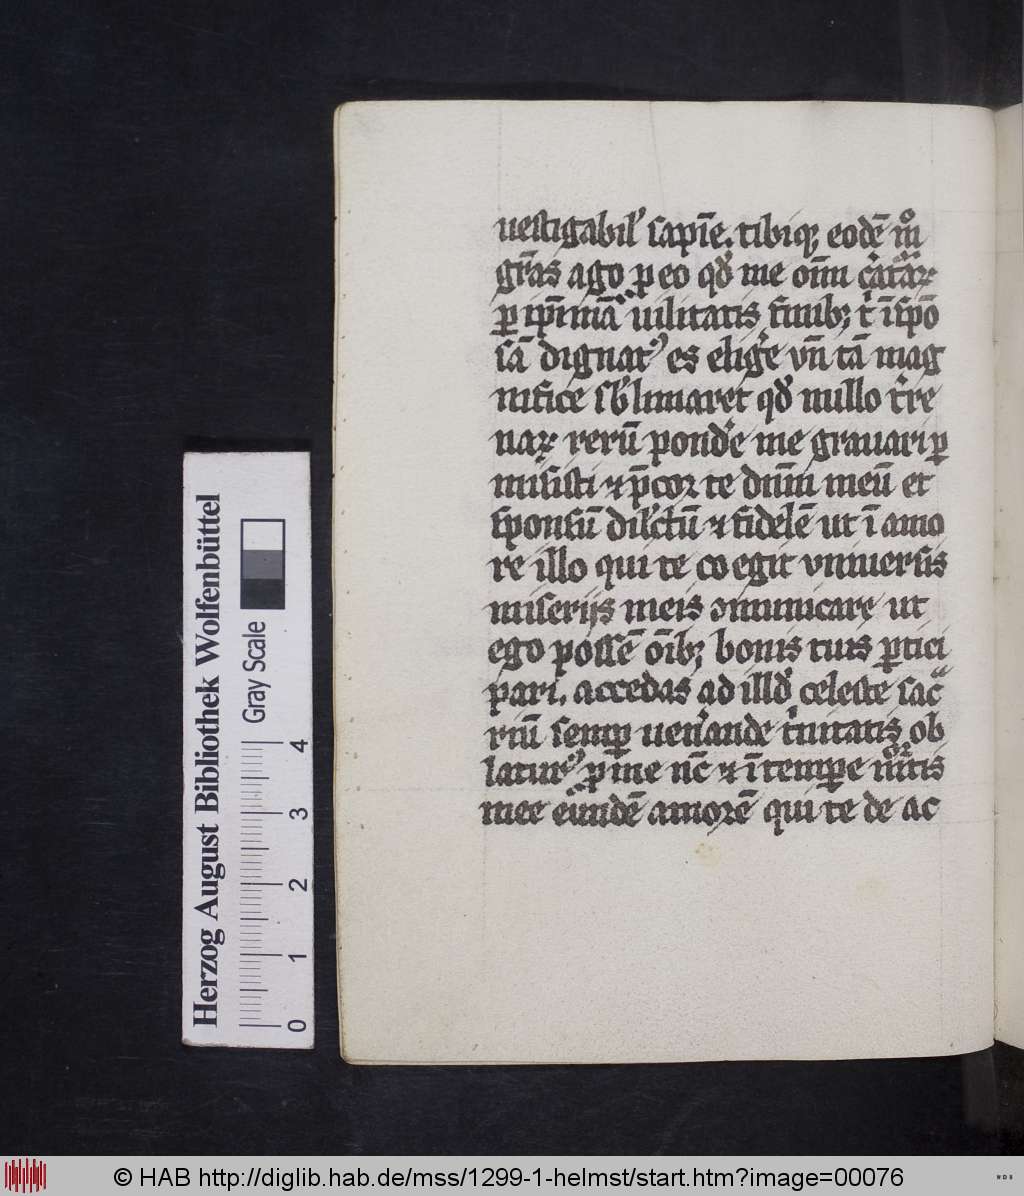 uestigabil' sapīe. tibiq; eodē mͦ
gr̄as ago ꝑ eo qd' me om̄ c'atᷓaꝝ
ꝑ ip̄imā uilitatis finib; t' ī spō
sā dignatꝰ es elig'e vn̄ tā mag
nifice sb'limaret qd' nullo t're
naꝝ rerū pond'e me grauari ꝑ
misisti ⁊ p̄cor te dn̄m meū et
sponsū dil'ctū ⁊ fidelē ut ī amo
re illo qui te coegit vniuersis
miserijs meis ꝯmunicare ut
ego possē oīb; bonis tuis ꝑtici
pari. accedas ad illd' celeste sac̄
riū semꝑ uen'ande t'initatis ob
laturꝰ ꝑ me nc̄ ⁊ ī tempore mor̄tis
mee eūndē amorē qui te de ac
Herzog August Bibliothek Wolfenbüttel
Gray Scale
0 1 2 3 4
© HAB http://diglib.hab.de/mss/1299-1-helmst/start.htm?image=00076